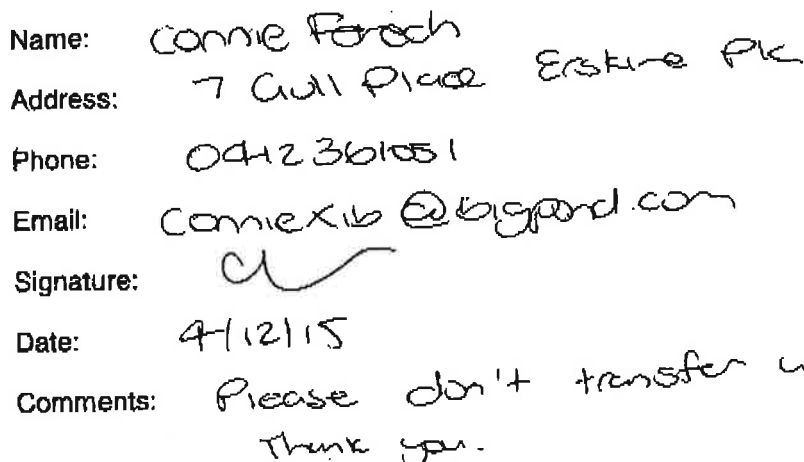 Name: Connie
Address: 7 Gull Place Erskine Pk
Phone: 0412361051
Email: conniexib@bigpond.com
Signature:
Date: 4/12/15
Comments: Please don't transfer
Thank you.